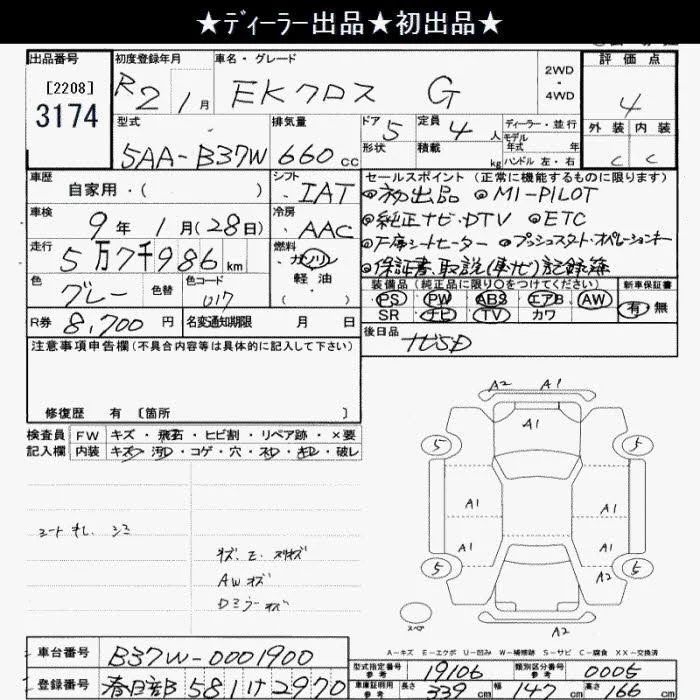 ★ディーラー出品★初出品★
出品番号 初度登録年月 車名・グレード 2WD・4WD 評価点
[2208]
3174
R2 1月 EKクロス G 4
型式 排気量 ドア 5 定員 4人 ディーラー・並行 外装 内装
5AA-B37W 660cc 形状 積載 kg モデル年式 年式 ハンドル 左・右 C C
車歴 自家用・( ) シフト IAT
セールスポイント(正常に機能するものに限ります)
◎初出品 ◎MI-PILOT
車検 9年1月(28日) 冷房 AAC
◎純正ナビ・DTV ◎ETC
走行 5万7千986km 燃料 ガソリン 軽油 ( )
◎プッシュスタート・オペレーションキー
◎保証書、取説(車ナビ)記録簿
色 グレー 色替 色コード U17
装備品(純正品に限り○をつけてください) 新車保証書
PS PW ABS エアB AW 有 無
SR ナビ TV カワ
R券 8,700円 名変通知期限 月 日
後日品 ナビSD
注意事項申告欄(不具合内容等は具体的に記入して下さい)
修復歴 有 [箇所 ]
検査員記入欄 FW キズ・飛石・ヒビ割・リペア跡・×要
内装 キズ・汚・コゲ・穴・スレ・キレ・破レ
A2 A1
A1
5 5
A1 A1
A1 A1
5 A2 5
A2
スペア
シートキレ シミ
AWキズ
Dミラーキズ
A-キズ E-エクボ U-凹み W-補修跡 S-サビ C-腐食 XX-交換済
車台番号 B37W-0001900
型式指定番号 参考 19106 類別区分番号 参考 0005
登録番号 春日部 581 け 2970
車庫証明用 参考 長さ 339cm 幅 147cm 高さ 166cm